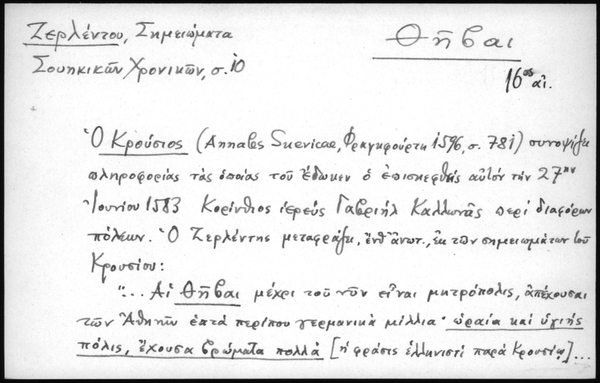 Ζερλέντου, Σημειώματα
Θῆβαι
Σουηκικῶν Χρονικῶν, σ. 10
16ος αἰ.
Ὁ Κρούσιος (Annales Suevicae, Φραγκφούρτη 1596, σ. 781) συνοψίζει
πληροφορίας τὰς ὁποίας τοῦ ἔδωκεν ὁ ἐπισκεφθεὶς αὐτὸν τὴν 27ην
Ἰουνίου 1583 Κορίνθιος ἱερεὺς Γαβριὴλ Καλλωνᾶς περὶ διαφόρων
πόλεων. Ὁ Ζερλέντης μεταφράζει, ἔνθ' ἀνωτ., ἐκ τῶν σημειωμάτων τοῦ
Κρουσίου:
"... Αἱ Θῆβαι μέχρι τοῦ νῦν εἶναι μητρόπολις, ἀπέχουσαι
τῶν Ἀθηνῶν ἑπτὰ περίπου γερμανικὰ μίλλια· ὡραία καὶ ὑγιὴς
πόλις, ἔχουσα βρώματα πολλὰ [ἡ φράσις ἑλληνιστὶ παρὰ Κρουσίῳ]...